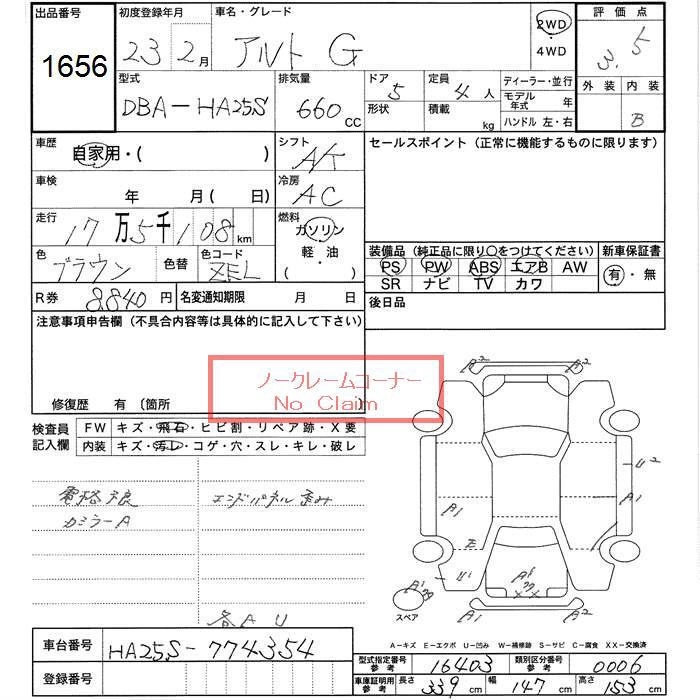 出品番号 初度登録年月 車名・グレード 評価点
1656 23 2月 アルト G 2WD 4WD 3.5
型式 排気量 ドア 定員 ディーラー・並行 外装 内装
DBA-HA25S 660 CC 5 4人 モデル年式 年 B
形状 積載 kg ハンドル 左・右
車歴 自家用・( ) シフト AK セールスポイント(正常に機能するものに限ります)
車検 年 月( 日) 冷房 AC
走行 17万5千108km 燃料 ガソリン 軽・油 ( )
装備品(純正品に限り〇をつけてください) 新車保証書
色 ブラウン 色替 色コード ZEL PS PW ABS エアB AW 有・無
SR ナビ TV カワ
R券 8840円 名変通知期限 月 日 後日品
注意事項申告欄(不具合内容等は具体的に記入して下さい)
ノークレームコーナー
No Claim
修復歴 有 〔箇所 〕
検査員記入欄 FW キズ・飛石・ヒビ割・リペア跡・X要
内装 キズ・汚レ・コゲ・穴・スレ・キレ・破レ
A2 A2
U2
A1 A1
電格不良 エンドパネル歪み
カミラーA
E
U1 A1
A1 スペア
各AU
A2 A2
A-キズ E-エクボ U-凹み W-補修跡 S-サビ C-腐食 XX-交換済
車台番号 HA25S-774354
型式指定番号参考 16403 類別区分番号参考 0006
登録番号
車庫証明用参考 長さ 339cm 幅 147cm 高さ 153cm